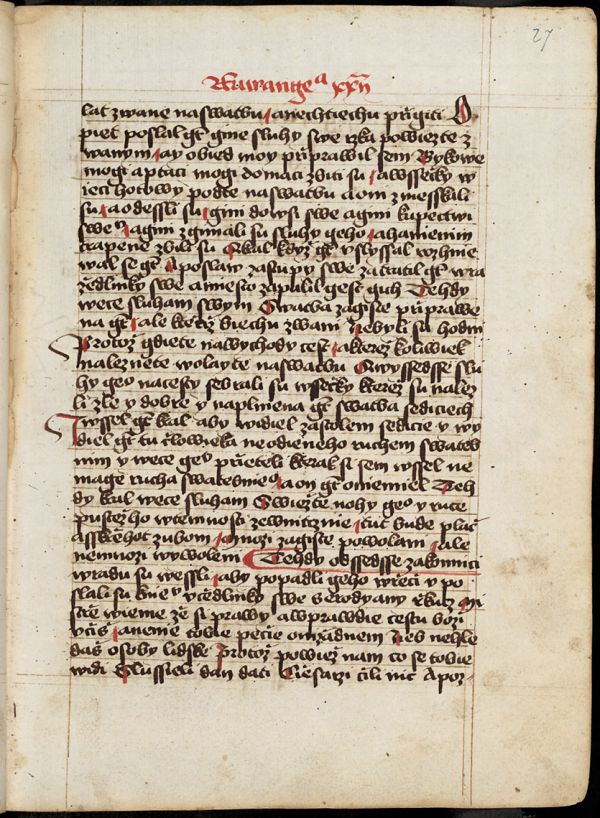 27
lat zwane naswatbu anechtiechu przigiti O
piet poslal gt gine sluhy swe rzka powiezte z
wanym ay obied moy przprawil sem Bykowe
mogi aptaci mogi domaci zbiti su awsseczky w
ieci hotowy podte naswatbu aoni zmesskali
su aodessli su gini dowsi swe agini kupectwi
swe agini zgimali su sluhy geho ahanienim
trapene zbili su Kral kdyz gt vslyssal rozhnie
wal se gt Aposlaw zastupy swe zatratil gt wra
zedlniky swe amiesto zapalil gest gich Tehdy
wece sluham swym Swatba zagiste przprawe
na gt ale kterziz biechu zwani Nebyli su hodni
Protoz gdiete nawychody cest akterez koliwiek
naleznete wolayte naswatbu Gwyssedsse slu
hy geo nacesty sebrali su wsseczky kterez su nalez
li zle y dobre y naplniena gt swatba sediciech
Wssel gt kral aby widiel zastolem sedicie y wy
diel gt tu czlowieka neodieneho ruchem swateb
nim y wece geo przieteli kterak si sem wssel ne
mage rucha swatebnieo aon gt oniemiel Teh
dy kral wece sluham Swiezte nohy geo y ruce
pustez ho wtemnosti zewnitrznie tut bude placz
asskrzehot zubom mnozi zagiste powolani ale
nemnozi wywoleni Tehdy odssedsse zakonnici
wradu su wessli aby popadli geho wrzeci y po
slali su knie uczedlniky swe sherodyany rzkuc Mi
strze wieme ze si prawy awprawdie cestu bozi
uczis anenie tobie pecze onizadnem Neb nehle
das osoby lidske Protoz powiez nam co se tobie
widi Slussieli dan dati Ciesarzi cili nic Apoz-